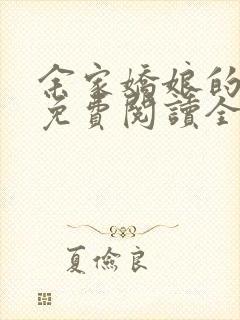 余家嬌娘的
免費閱讀全
夏儉良